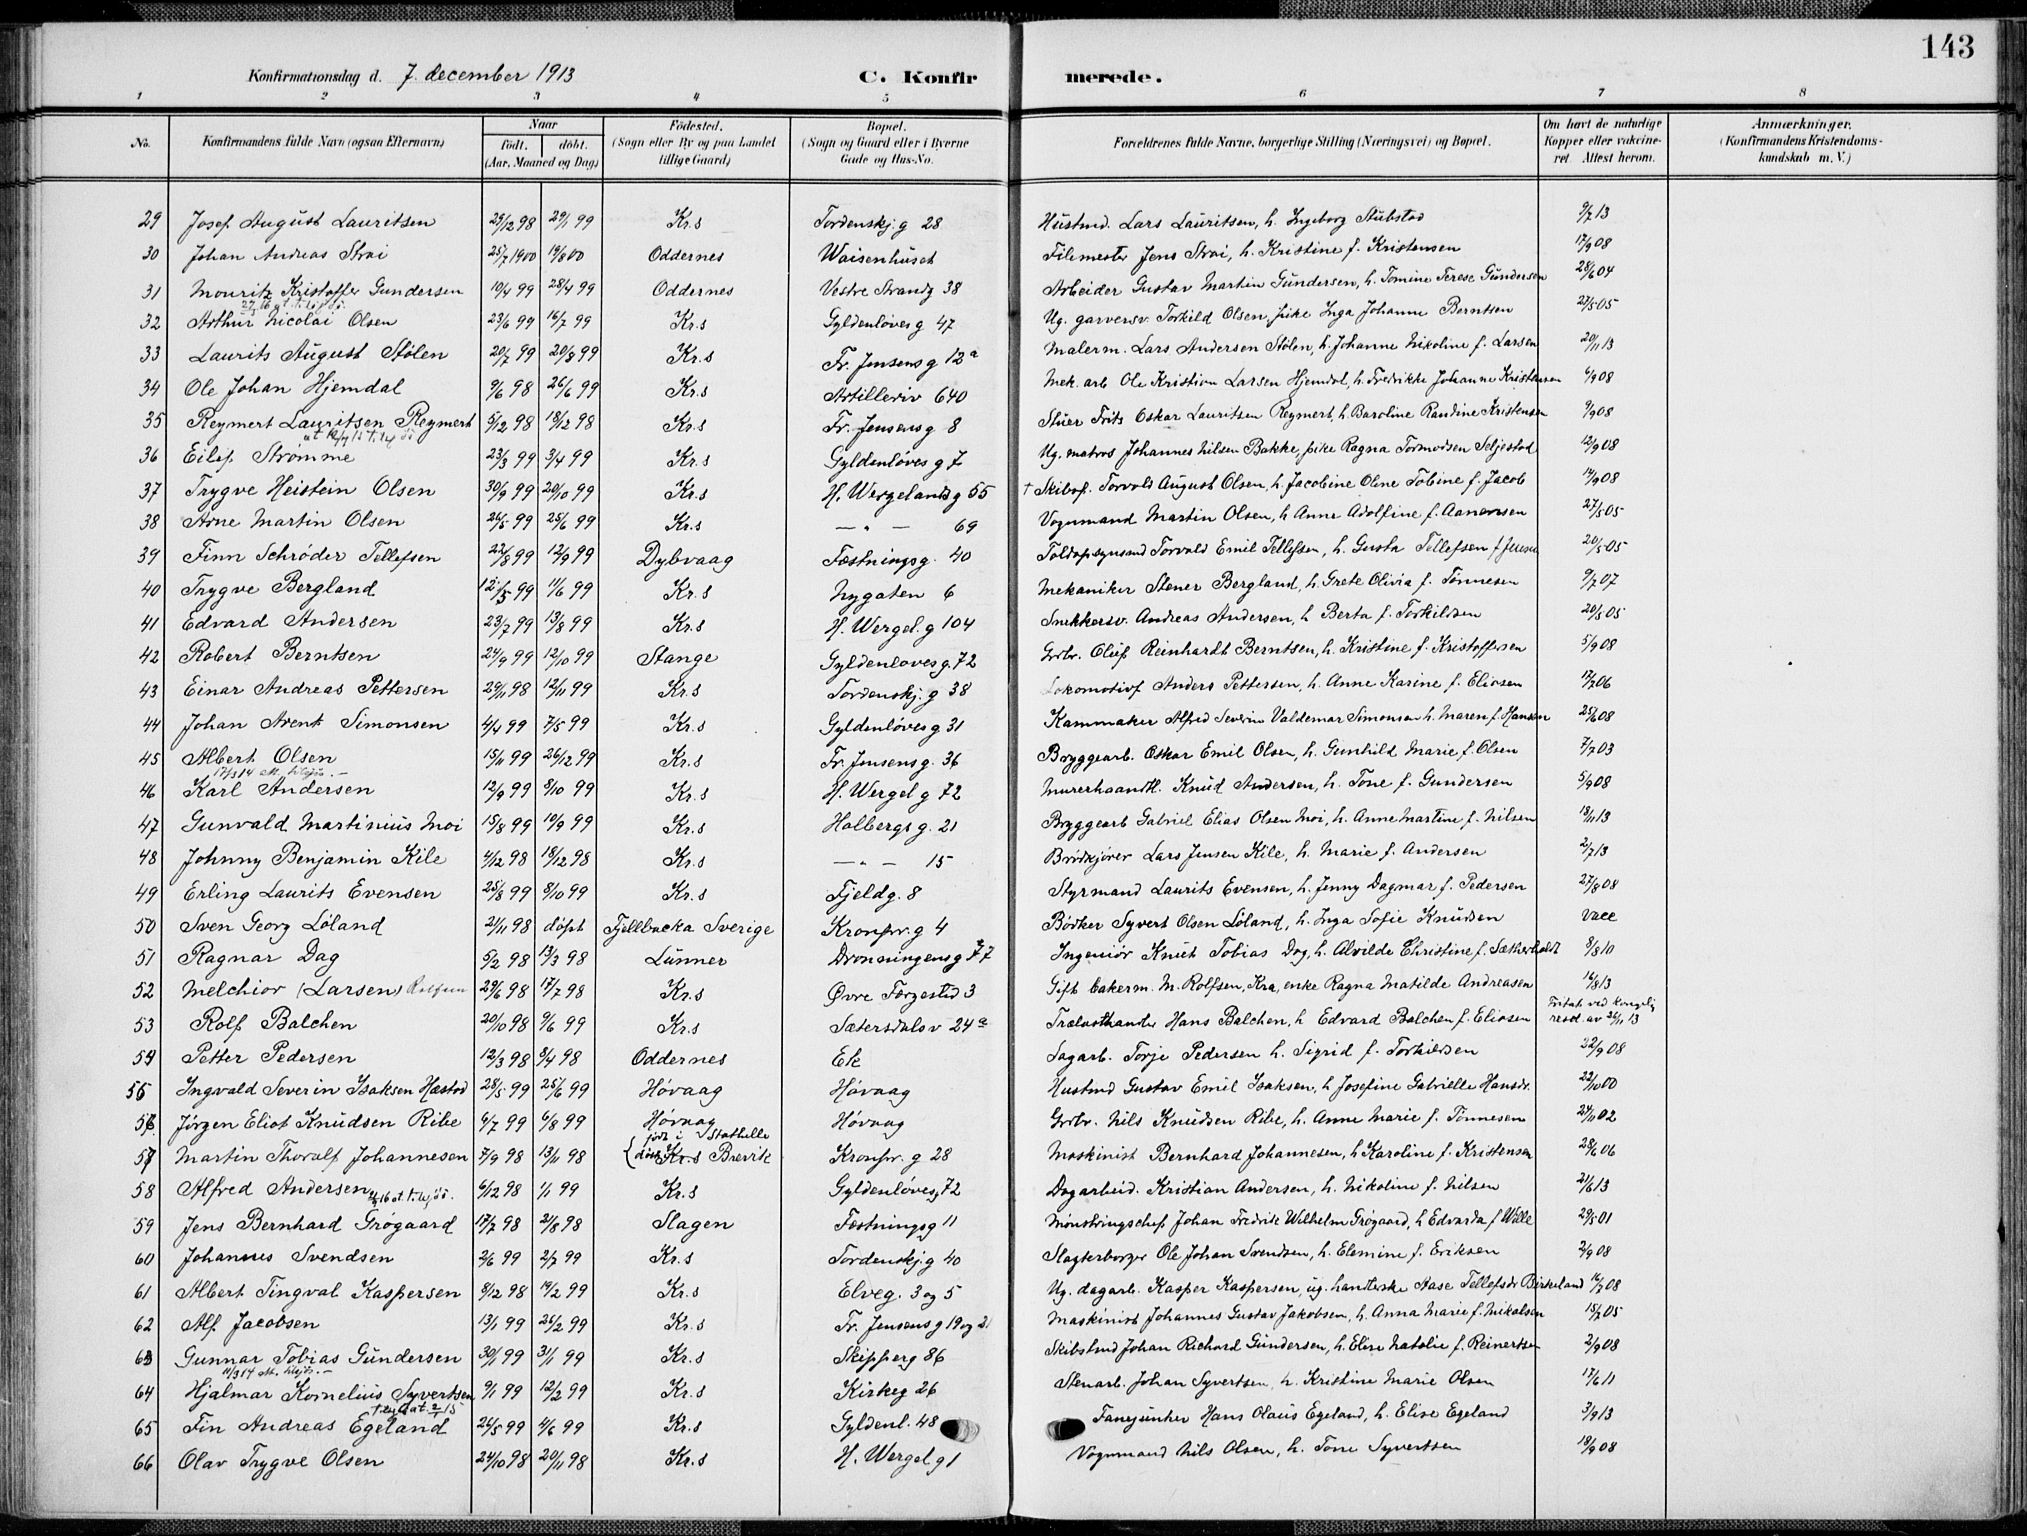 143
Konfirmationsdag d. 7. december 1913 C. Konfirmerede.
1 2 3 4 5 6 7 8
No. Konfirmandens fulde Navn (ogsaa Efternavn) Naar født. døbt. (Aar, Maaned og Dag) Fødested. (Sogn eller By og paa Landet tillige Gaard) Bopæl. (Sogn og Gaard eller i Byerne Gade og Hus-No. Forældrenes fulde Navne, borgerlige Stilling (Næringsvei) og Bopæl. Om havt de naturlige Kopper eller vaccineret. Attest herom. Anmærkninger. (Konfirmandens Kristendomskundskab m. V.)
29 Josef August Lauritsen 29/12 98 29/1 99 Kr.s Tordenskj. g 28 Hustmd. Lars Lauritsen, h. Ingeborg Stubstad 9/7 13
30 Johan Andreas Strai 25/7 1900 19/8 00 Oddernes Waisenhuset Filemester Jens Strai, h. Kristine f. Kristensen 17/9 08
31 Mouritz Kristoffer Gundersen 10/4 99 28/4 99 Oddernes Vestre Strandg 38 Arbeider Gustav Martin Gundersen, h. Tomine Terese Gundersen 28/6 04
32 Arthur Nicolai Olsen 23/6 99 16/7 99 Kr.s Gyldenløves g 47 Ug. garversv. Torkild Olsen, pike Inga Johanne Berntsen 27/5 05
33 Laurits August Stølen 20/7 99 20/8 99 Kr.s Fr. Jensens g 12a Malerm. Lars Andersen Stølen, h. Johanne Nikoline f. Larsen 20/11 13
34 Ole Johan Hjemdal 9/6 98 26/6 99 Kr.s Artilleriv 640 Mek. arb Ole Kristian Larsen Hjemdal, h. Fredrikke Johanne Kristensen 6/9 08
35 Reymert Lauritsen Reymert 5/12 98 18/12 98 Kr.s Fr. Jensens g 8 Stuer Frits Oskar Lauritsen Reymert, h. Baroline Randine Kristensen 9/9 08
36 Eilif Strømme 23/3 99 3/4 99 Kr.s Gyldenløves g 7 Ug. matros Johannes Nilsen Bakke, pike Ragna Tormodsen Seljestad 12/9 08
37 Trygve Heistein Olsen 30/9 99 20/10 99 Kr.s H. Wergelands g 55 † Skibsf. Torvald August Olsen, h. Jacobine Oline Tobine f. Jacob 14/9 08
38 Arne Martin Olsen 26/5 99 25/6 99 Kr.s — " — 69 Vognmand Martin Olsen, h Anne Adolfine f. Aanensen 27/5 05
39 Finn Schrøder Tellefsen 22/8 99 12/9 99 Dybvaag Fæstningsg. 40 Toldopsynsmd Torvald Emil Tellefsen, h. Gusta Tellefsen f Jensen 20/5 05
40 Trygve Bergland 12/5 99 11/6 99 Kr.s Nygaten 6 Mekaniker Stener Bergland, h. Grete Olivia f. Tønnesen 9/7 07
41 Edvard Andersen 23/7 99 13/8 99 Kr.s H. Wergel. g 104 Snekkersv. Andreas Andersen, h Berta f. Torkildsen 20/5 05
42 Robert Berntsen 24/9 99 12/10 99 Stange Gyldenløves g. 72 Grbr. Oluf Reinhardt Berntsen, h. Kristine f. Kristoffersen 5/9 08
43 Einar Andreas Pettersen 29/11 98 12/11 99 Kr.s Tordenskj. g 38 Lokomotivf Anders Pettersen, h. Anne Karine f. Eliasen 17/7 06
44 Johan Arent Simonsen 4/4 99 7/5 99 Kr.s Gyldenløves g 31 Kammaker Alfred Severin Valdemar Simonsen h. Maren f. Hansen 25/6 08
45 Albert Olsen 15/11 99 26/12 99 Kr.s Fr. Jensens g. 36 Bryggearb. Oskar Emil Olsen, h. Gunhild Marie f. Olsen 7/7 03
46 Karl Andersen 12/9 99 8/10 99 Kr.s H. Wergel g 72 Murerhaandl. Knud Andersen, h. Tone f. Gundersen 5/9 08
47 Gunvald Martinius Moi 15/8 99 10/9 99 Kr.s Holbergs g. 21 Bryggearb Gabriel Elias Olsen Moi, h. Anne Martine f. Nilsen 18/11 13
48 Johnny Benjamin Kile 4/12 98 18/12 98 Kr.s — " — 15 Brødkjører Lars Jensen Kile, h. Marie f. Andersen 2/7 13
49 Erling Laurits Evensen 25/8 99 8/10 99 Kr.s Fjeldg. 8 Styrmand Laurits Evensen, h. Jenny Dagmar f. Pedersen 27/8 08
50 Sven Georg Løland 21/11 98 døpt Fjellbacka Sverige Kronpr. g 4 Bødker Syvert Olsen Løland, h. Inga Sofie Knudsen vacc
51 Ragnar Dag 5/2 98 13/3 98 Lunner Dronningens g 77 Ingeniør Knut Tobias Dag, h. Alvilde Christine f. Sæterholdt 8/8 10
52 Melchior (Larsen) Rolfsen 29/6 98 17/7 98 Kr.s Øvre Torvested 3 Gift bakerm. M. Rolfsen, Kra, enke Ragna Matilde Andreasen 16/8 13
53 Rolf Balchen 20/10 98 9/6 99 Kr.s Sætersdalsv 24a Trælasthandler Hans Balchen, h Edvard Balchen f. Eliasen Fritat. ved kongelig resol. av 26/11 13
54 Petter Pedersen 12/3 98 8/4 98 Oddernes Ek Sagarb. Torje Pedersen h. Sigrid f. Torkildsen 22/9 08
55 Ingvald Severin Isaksen Hæstad 28/5 99 25/6 99 Høvaag Høvaag Hustmd Gustav Emil Isaksen, h Josefine Gabrielle Hansdr. 22/10 00
56 Jørgen Eliot Knudsen Ribe 6/7 99 6/8 99 Høvaag Høvaag Grbr. Nils Knudsen Ribe, h. Anne Marie f. Tønnesen 24/11 02
57 Martin Thoralf Johannesen 7/9 98 13/11 98 { født i Stathelle døbt Kr.s Brevik Kronpr. g 28 Maskinist Bernhard Johannesen, h Karoline f. Kristensen 28/6 06
58 Alfred Andersen 6/12 98 1/1 99 Kr.s Gyldenløvesg 72 Dagarbeid. Kristian Andersen, h. Nikoline f. Nilsen 21/6 13
59 Jens Bernhard Grøgaard 17/7 98 21/8 98 Slagen Fæstningsg 11 Mønstringschef Johan Fredrik Wilhelm Grøgaard, h Edvarda f Wille 29/5 01
60 Johannes Svendsen 2/6 99 2/7 99 Kr.s Tordenskj. g 40 Slagterborger Ole Johan Svendsen, h. Elemine f. Eriksen 2/9 08
61 Albert Tingval Kaspersen 8/12 98 19/2 99 Kr.s Elveg. 3 og 5 Ug. dagarb. Kasper Kaspersen, ug. hanterske Aase Tellefsdr Birkeland 16/7 08
62 Alf Jacobsen 13/1 99 26/2 99 Kr.s Fr. Jensens g 19 og 21 Maskinist Johannes Gustav Jakobsen, h. Anna Marie f. Nikolsen 15/7 05
63 Gunnar Tobias Gundersen 30/1 99 31/1 99 Kr.s Skipperg 86 Skibstmd Johan Richard Gundersen, h. Elise Natalie f. Reinertsen 2/9 08
64 Hjalmar Kornelius Syvertsen 9/1 99 12/2 99 Kr.s Kirkeg 26 Stenarb. Johan Syvertsen, h. Kristine Marie Olsen 17/6 11
65 Fin Andreas Egeland 24/5 99 4/6 99 Kr.s Gyldenl. 48 Fanejunker Hans Olaus Egeland, h. Elise Egeland 3/9 13
66 Olav Trygve Olsen 24/10 98 20/11 98 Kr.s H. Wergel g 1 Vognmand Nils Olsen, h. Tone Syvertsen 18/9 08